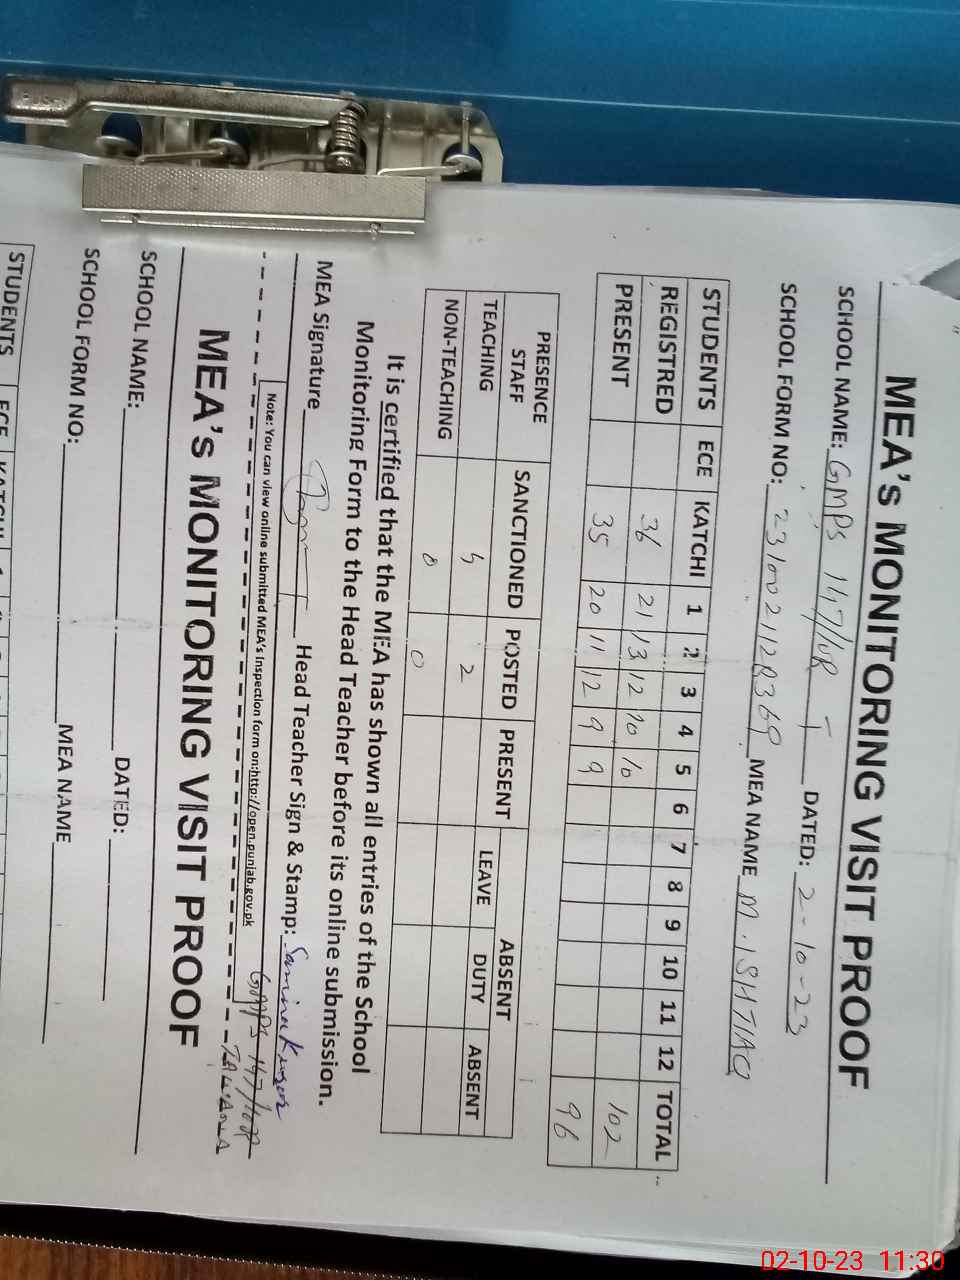 MEA's MONITORING VISIT PROOF
SCHOOL NAME: GMPS 147/10R T DATED: 2-10-23
SCHOOL FORM NO: MEA NAME M. ISHTIAQ
STUDENTS ECE KATCHI 1 2 3 4 5 6 7 8 9 10 11 12 TOTAL
REGISTRED 36 21 13 12 10 10 102
PRESENT 35 20 11 12 9 9 96
PRESENCE STAFF SANCTIONED POSTED PRESENT ABSENT
LEAVE DUTY ABSENT
TEACHING 5 2
NON-TEACHING 0 0
It is certified that the MEA has shown all entries of the School
Monitoring Form to the Head Teacher before its online submission.
MEA Signature Head Teacher Sign & Stamp: Samina Kousar
Note: You can view online submitted MEA's Inspection form on:http://open.punjab.gov.pk
GMPS 147/10R
MEA's MONITORING VISIT PROOF
SCHOOL NAME: DATED:
SCHOOL FORM NO: MEA NAME
STUDENTS ECE KATCHI 1
PUSH
02-10-23 11:30